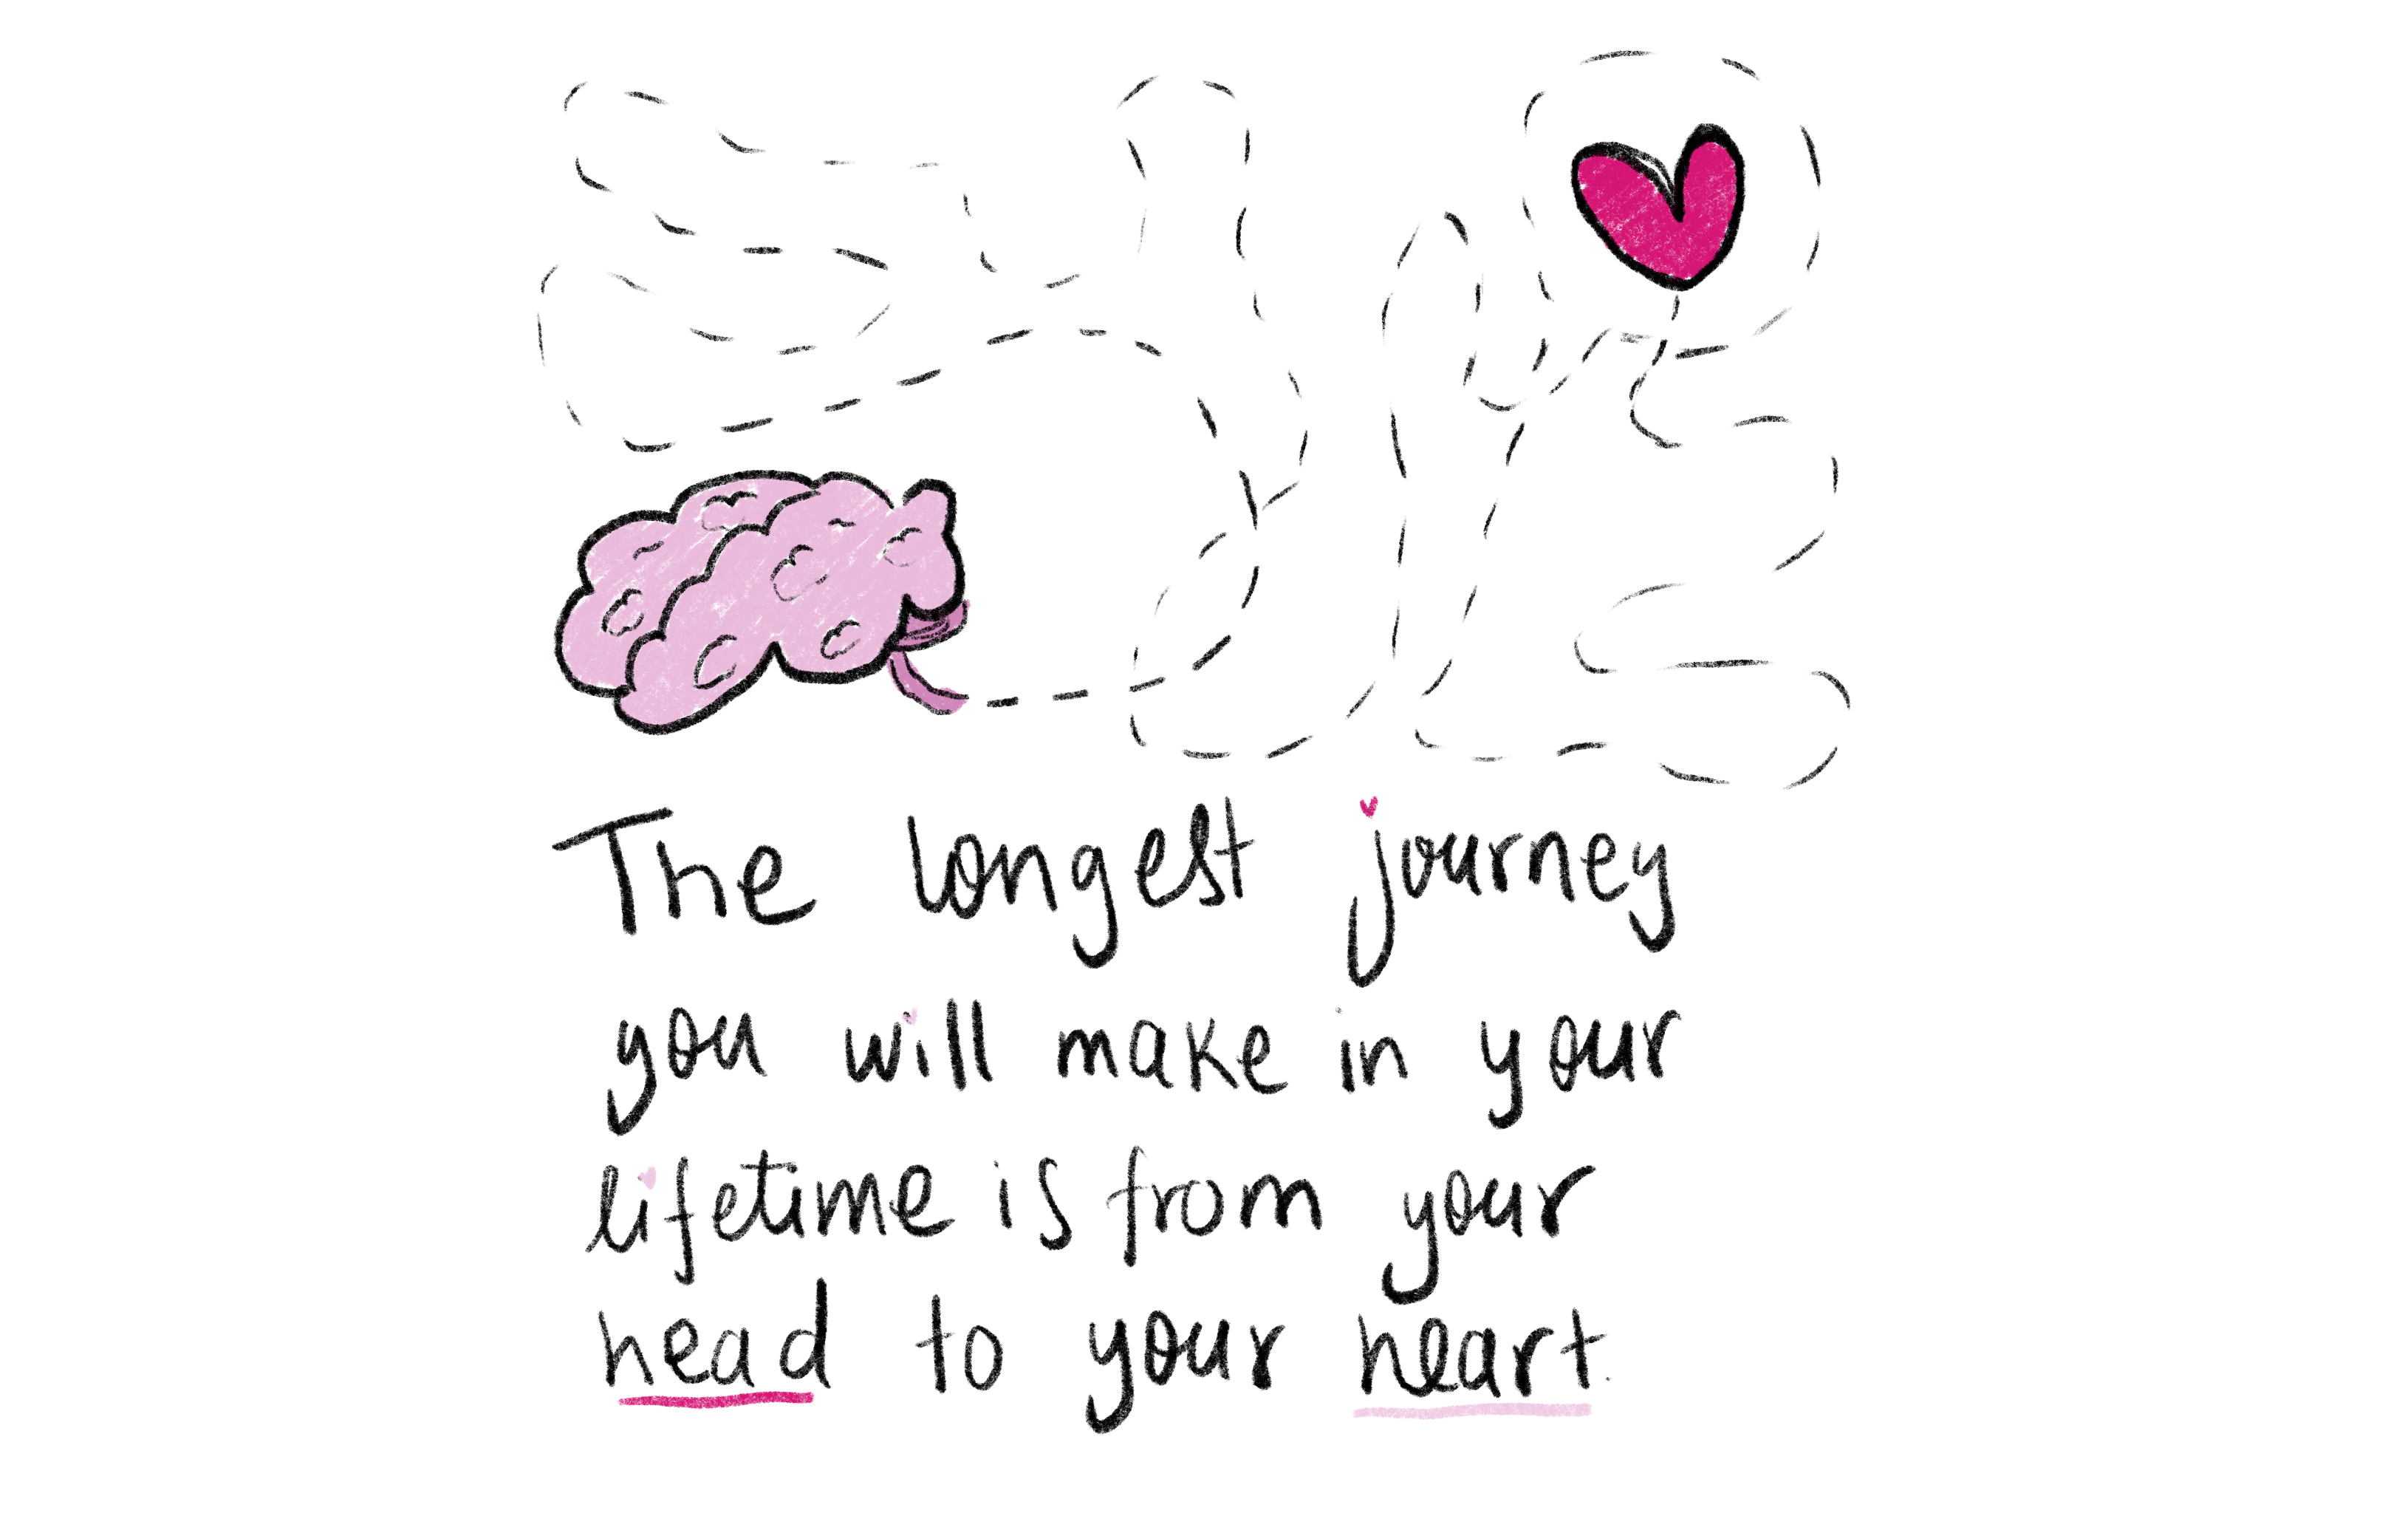 The longest journey
you will make in your
lifetime is from your
head to your heart.